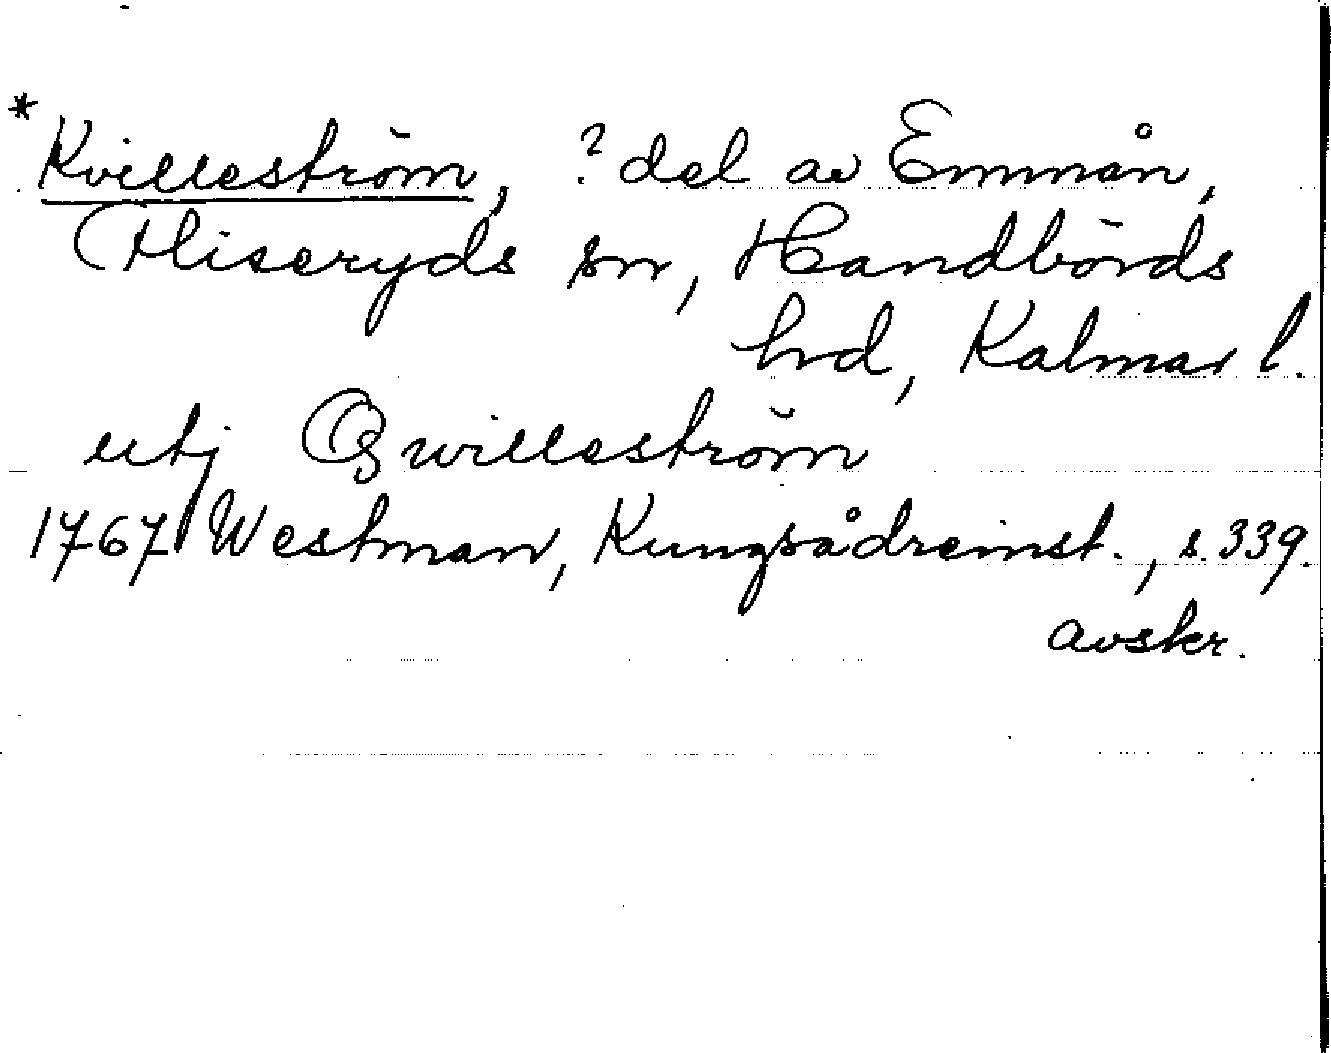 * Kvilleström, ? del av Emmån,
Fliseryds sn, Handbörds
hd, Kalmar l.
utj Qwilleström
1767 Westman, Kungsådreinst., s. 339.
avskr.